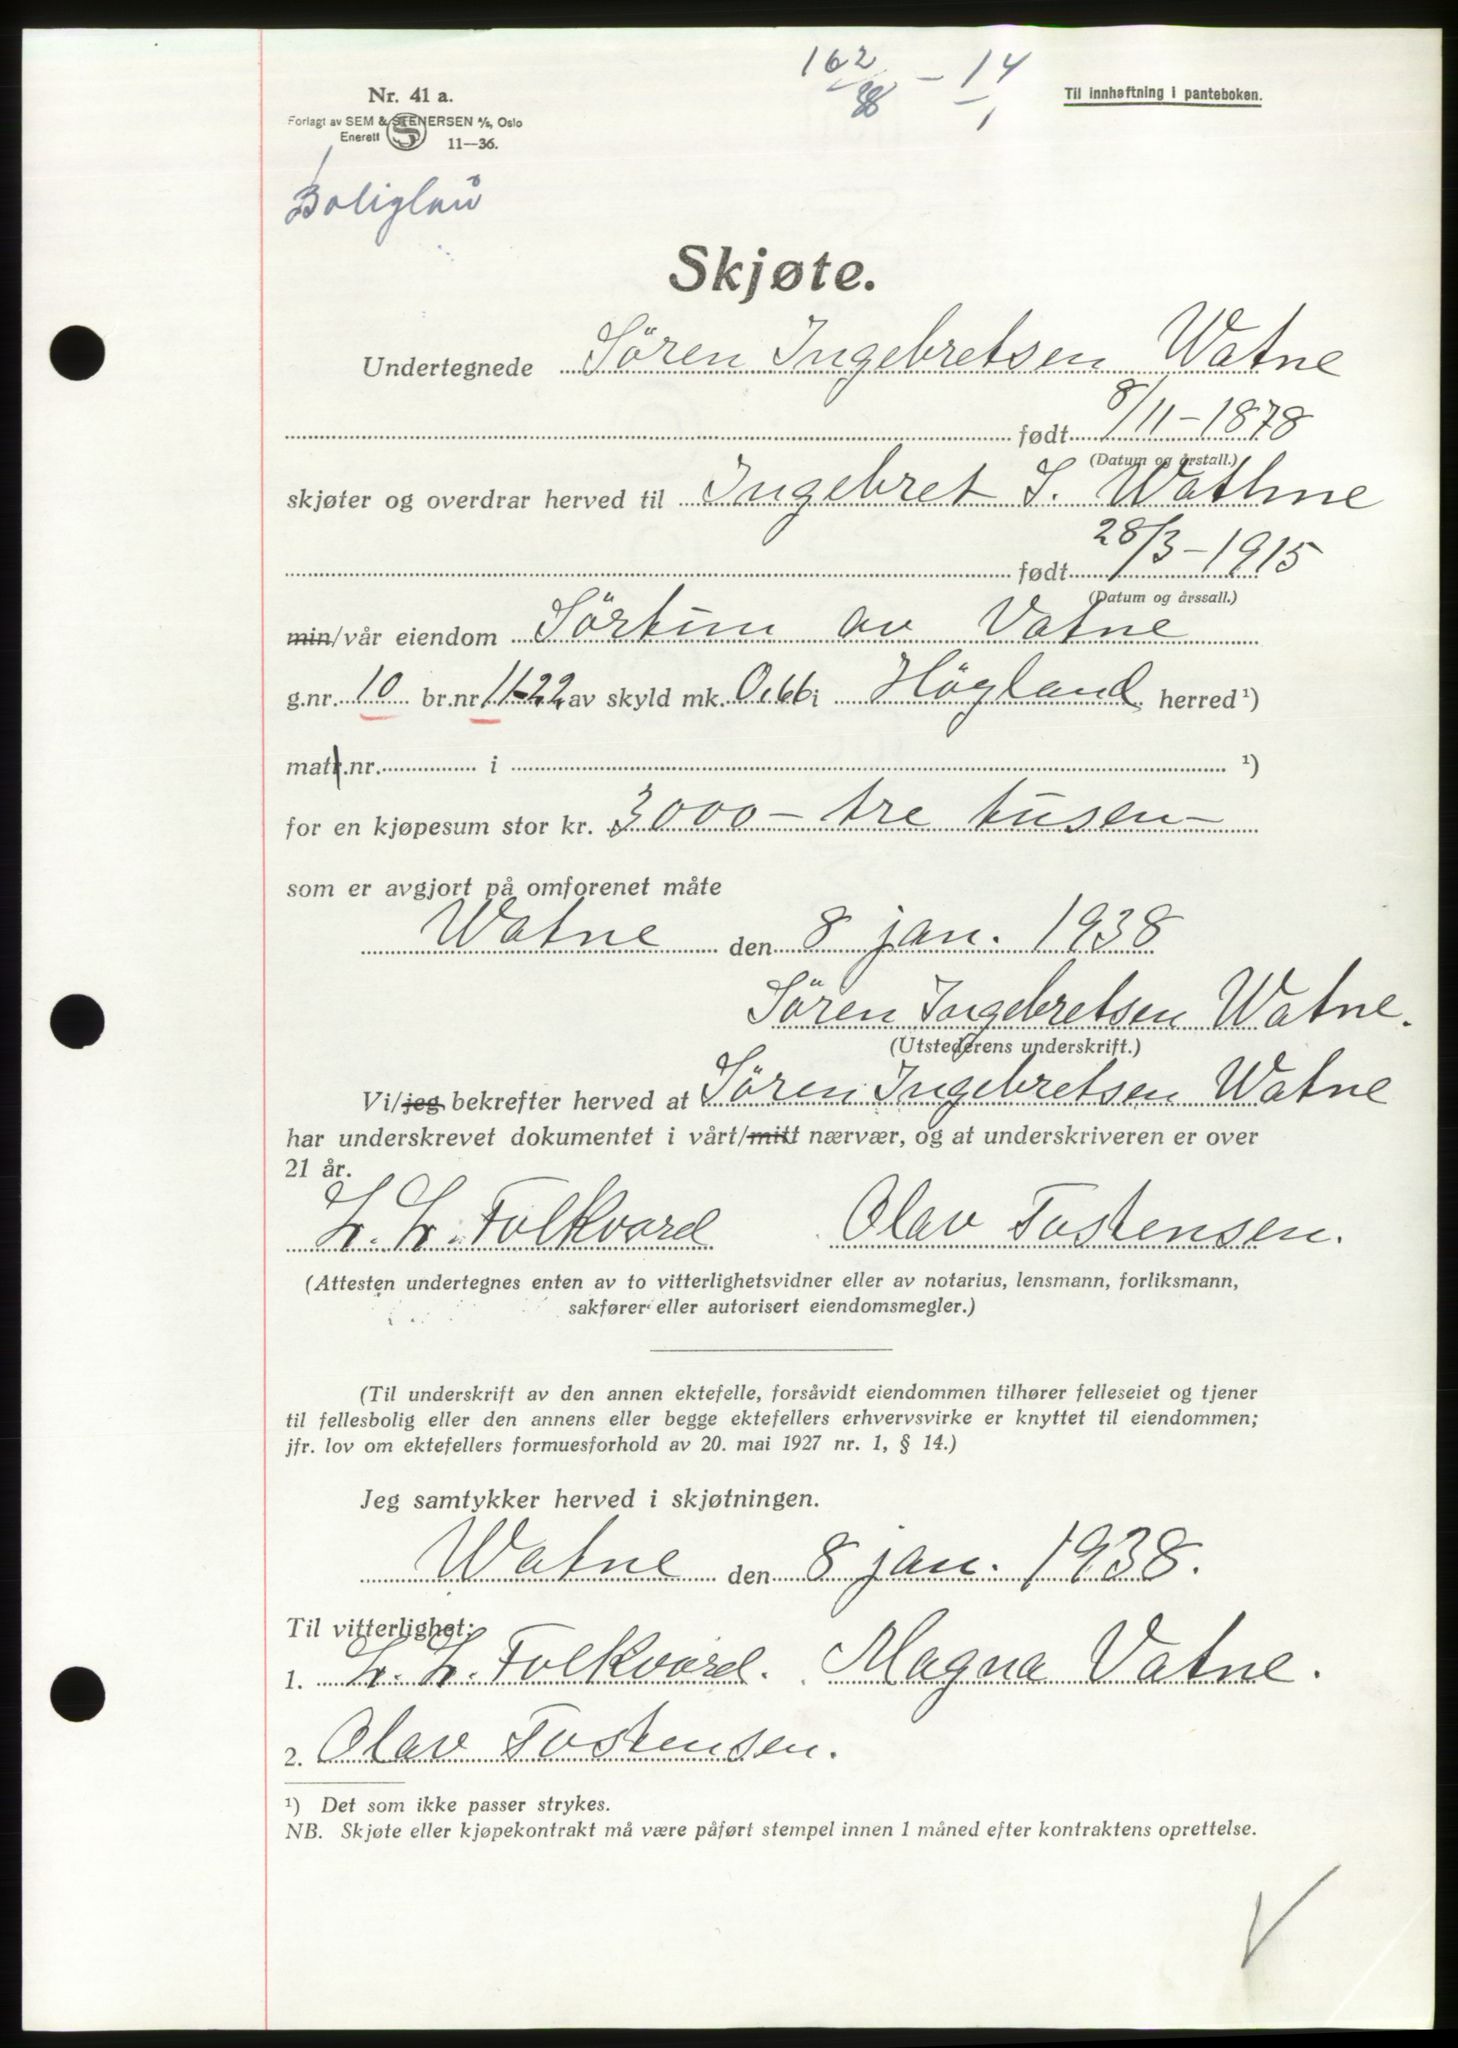 162/38 - 14/1
Nr. 41 a.
Til innheftning i panteboken.
Forlagt av SEM & STENERSEN A/S, Oslo
Enerett
11—36.
Boliglån
Skjøte.
Undertegnede Sören Ingebretsen Watne
født 8/11-1878
(Datum og årstall.)
skjøter og overdrar herved til Ingebret S. Wathne
født 28/3-1915
(Datum og årssall.)
min/vår eiendom Sörtun av Vatne
g.nr. 10 br.nr. 11-22 av skyld mk. 0,66 i Högland herred ¹)
matr.nr. i ¹)
for en kjøpesum stor kr. 3000 - tre tusen -
som er avgjort på omforenet måte
Watne den 8 jan. 1938
Sören Ingebretsen Watne.
(Utstederens underskrift.)
Vi/jeg bekrefter herved at Sören Ingebretsen Watne
har underskrevet dokumentet i vårt/mitt nærvær, og at underskriveren er over
21 år.
L. L. Folkvord Olav Tostensen.
(Attesten undertegnes enten av to vitterlighetsvidner eller av notarius, lensmann, forliksmann,
sakfører eller autorisert eiendomsmegler.)
(Til underskrift av den annen ektefelle, forsåvidt eiendommen tilhører felleseiet og tjener
til fellesbolig eller den annens eller begge ektefellers erhvervsvirke er knyttet til eiendommen;
jfr. lov om ektefellers formuesforhold av 20. mai 1927 nr. 1, § 14.)
Jeg samtykker herved i skjøtningen.
Watne den 8 jan. 1938.
Til vitterlighet:
1. L. L. Folkvord. Magna Vatne.
2. Olav Tostensen.
¹) Det som ikke passer strykes.
NB. Skjøte eller kjøpekontrakt må være påført stempel innen 1 måned efter kontraktens oprettelse.